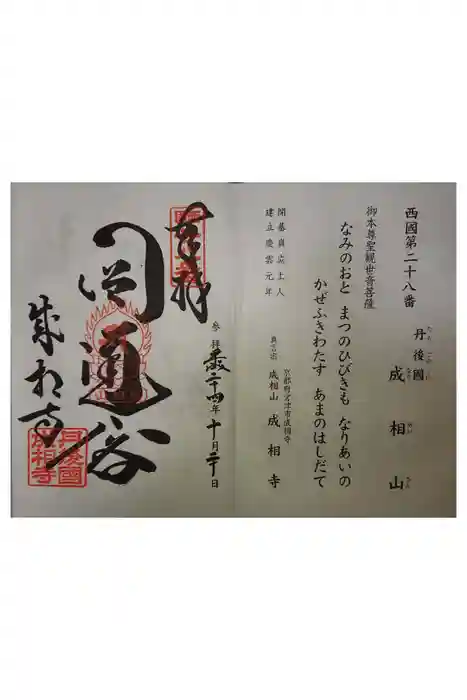 西國第二十八番
丹後國 成相山
たんごのくに なりあいさん
御本尊聖観世音菩薩
なみのおと まつのひびきも なりあいの
かぜふきわたす あまのはしだて
開基眞应上人
建立慶雲元年
京都府宮津市成相寺
真言宗 成相山 成相寺
奉拝
参拝 平成二十四年 十月二十日
圓通谷
成相寺
丹後國
成相寺